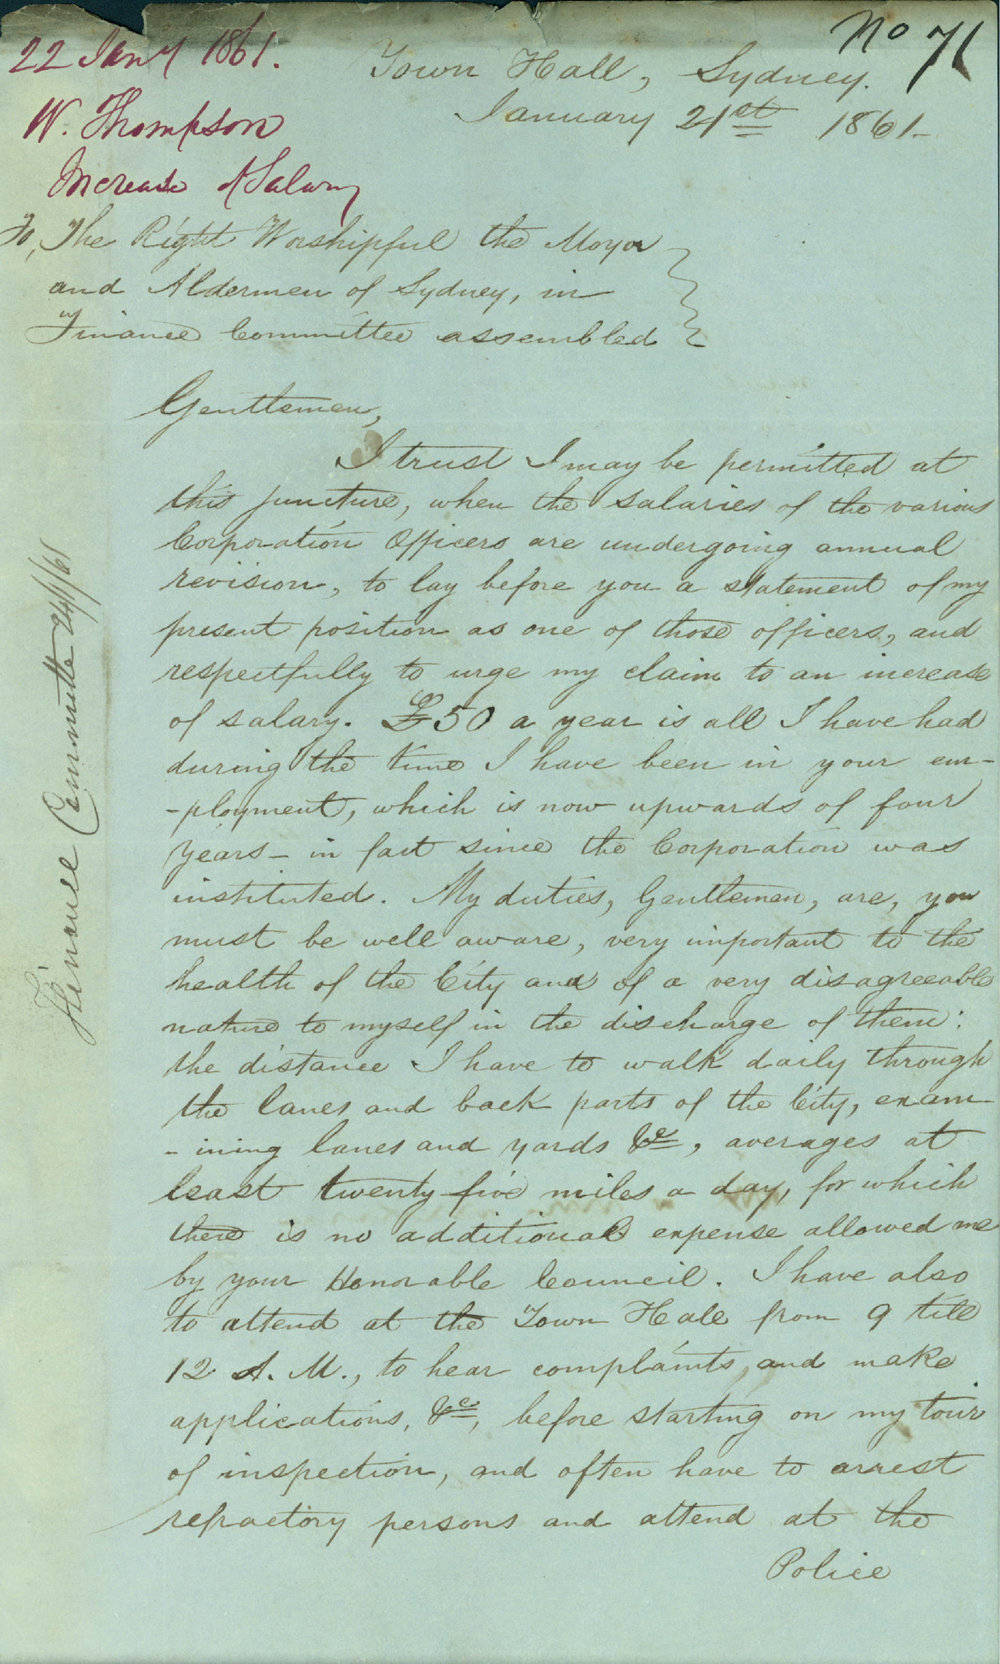 No 71
22 Jany 1861.
W. Thompson
Increase of Salary
Town Hall, Sydney.
January 21st 1861.
To, The Right Worshipful the Mayor
and Aldermen of Sydney, in
Finance Committee assembled
Gentlemen,
I trust I may be permitted at
this juncture, when the salaries of the various
Corporation Officers are undergoing annual
revision, to lay before you a statement of my
present position as one of those officers, and
respectfully to urge my claim to an increase
of salary. £50 a year is all I have had
during the time I have been in your em-
-ployment, which is now upwards of four
years - in fact since the Corporation was
instituted. My duties, Gentlemen, are, you
must be well aware, very important to the
health of the City and of a very disagreeable
nature to myself in the discharge of them:
the distance I have to walk daily through
the lanes and back parts of the City, exam-
-ining lanes and yards &c, averages at
least twenty five miles a day, for which
there is no additional expense allowed me
by your Honorable Council. I have also
to attend at the Town Hall from 9 till
12 A.M., to hear complaints, and make
applications, &c, before starting on my tour
of inspection, and often have to arrest
refractory persons and attend at the
Police
Finance Committee 24/1/61